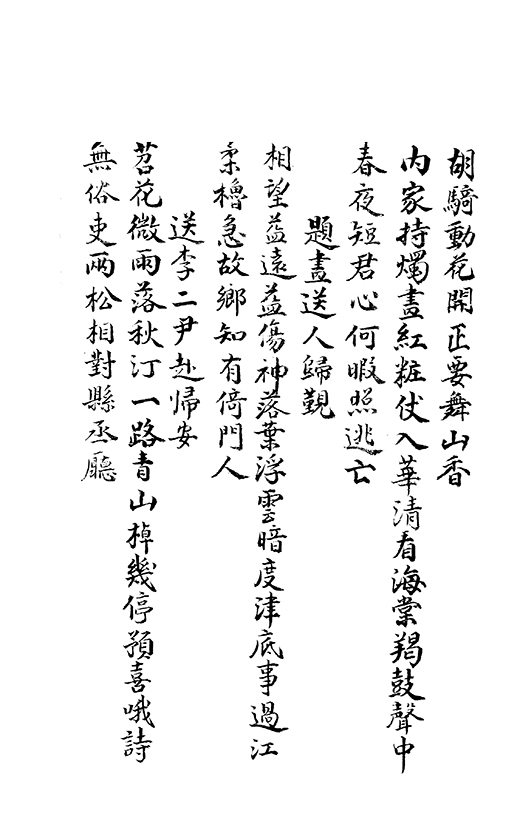 胡騎動花開正要舞山香
内家持燭晝紅粧伏入華清看海棠羯鼓聲中
春夜短君心何暇照逃亡
題畫送人歸覲
相望益遠益傷神落葉浮雲暗度津底事過江
柔櫓急故鄉知有倚門人
送李二尹赴帰安
苕花微雨落秋汀一路青山棹幾停預喜哦詩
無俗吏兩松相對縣丞廳